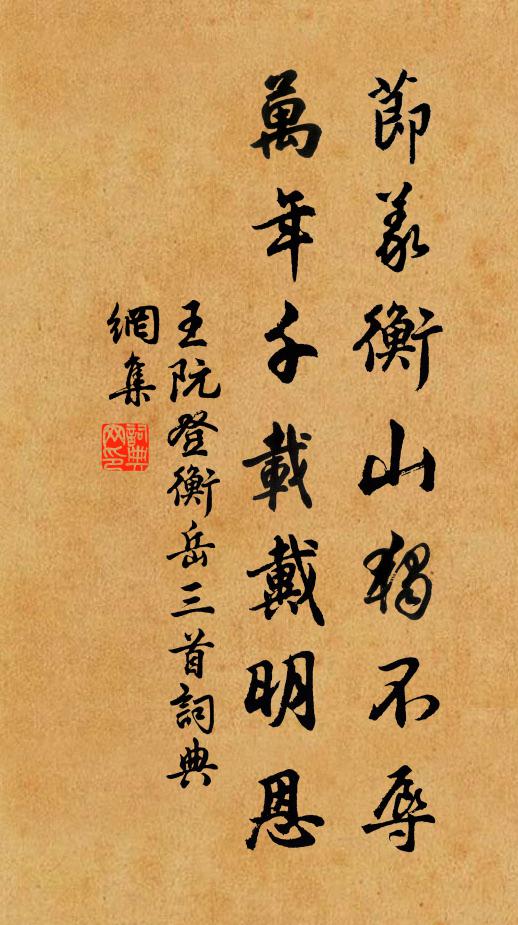 節義衡山獨不辱
萬年千載戴明恩
王阮登衡岳三首詞典
網集
詞典
网印